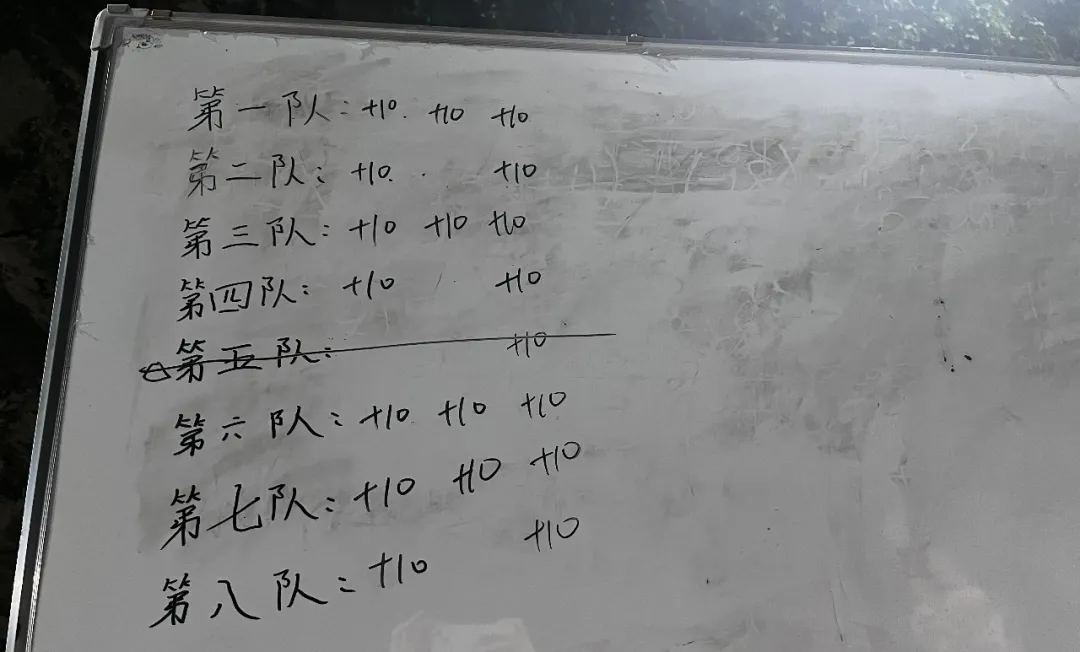 第一队: +10 +10 +10
第二队: +10 +10
第三队: +10 +10 +10
第四队: +10 +10
第五队: +10
第六队: +10 +10 +10
第七队: +10 +10 +10
第八队: +10 +10